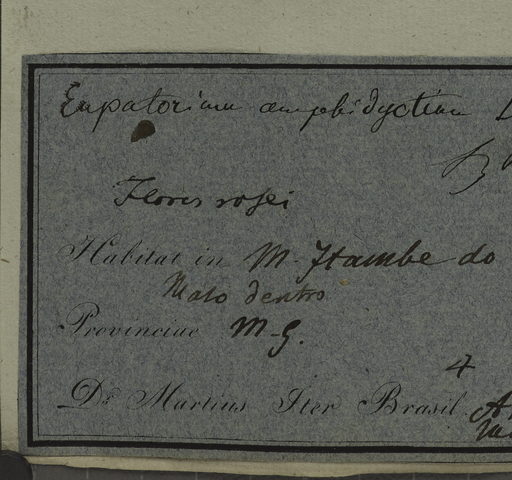 Eupatorium amphidyctium
Flores rosei
Habitat in M. Itambe do
Mato dentro
Provinciae M. G.
4
Dr. Martius Iter Brasil.